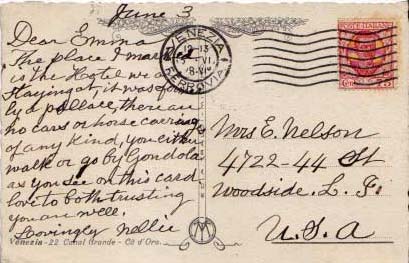 June 3
Dear Emma
The place I mark
is the Hotel we are
staying at, it was for
a pallace, there are
no cars or horse carriag
of any kind, you either
walk or go by Gondola
as you see on this card
love to both trusting
you are well.
Lovingly Nellie
Venezia - 22 Canal Grande - Cà d'Oro.
VENEZIA
FERROVIA
POSTE ITALIANE
Mrs E. Nelson
4722-44 St
Woodside, L. I.
U.S.A